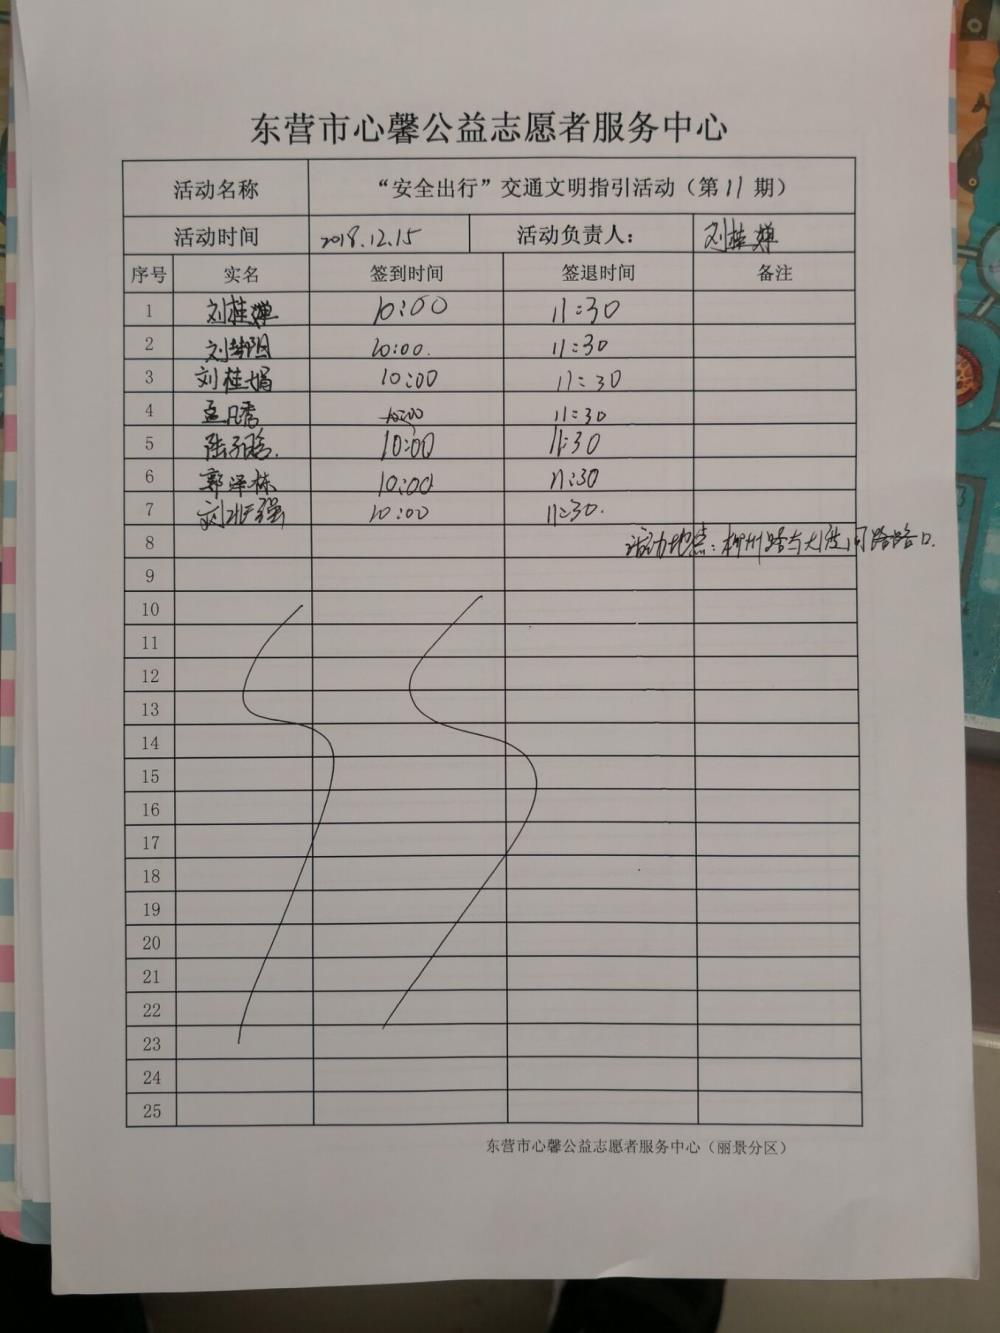 东营市心馨公益志愿者服务中心
活动名称 “安全出行”交通文明指引活动（第 11 期）
活动时间 2018.12.15 活动负责人： 刘桂婵
序号 实名 签到时间 签退时间 备注
1 刘桂婵 10:00 11:30
2 刘 10:00. 11:30
3 刘桂娟 10:00 11:30
4 孟凡秀 10:00 11:30
5 陆 10:00 11:30
6 郭泽栋 10:00 11:30
7 刘 强 10:00 11:30.
8 活动地点：柳州路与大渡河路路口.
9
10
11
12
13
14
15
16
17
18
19
20
21
22
23
24
25
东营市心馨公益志愿者服务中心（丽景分区）